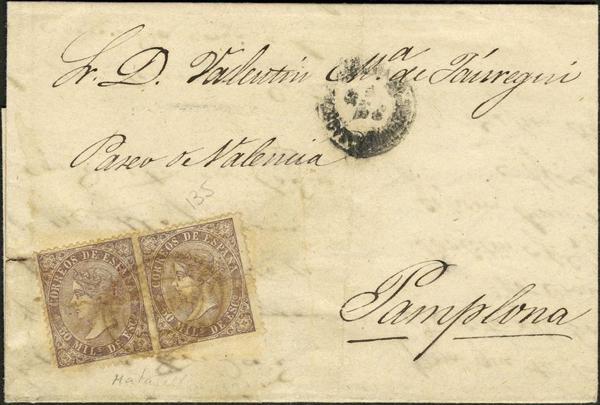 Sr. D. Valentín M.ª de Jáuregui
Paseo de Valencia
135
CORREOS DE ESPAÑA
50 MIL.s DE ESC.
CORREOS DE ESPAÑA
50 MIL.s DE ESC.
Pamplona